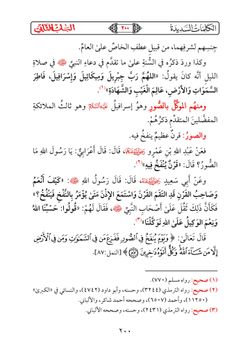 الكلمات السديدة ٢٠٠
جنسِهم لشرفِهما، من قبيل عطفِ الخاصِّ على العامّ.
وكذا وردَ ذكرُه في السُّنة على ما تقدَّم في دعاءِ النبيِّ ﷺ في صلاةِ
الليلِ أنَّه كانَ يقولُ: «اللهُمَّ رَبَّ جِبْرِيلَ وَمِيكَائِيلَ وَإِسْرَافِيلَ، فَاطِرَ
السَّمَوَاتِ وَالأَرْضِ، عَالِمَ الغَيْبِ وَالشَّهَادَةِ»(١).
ومنهُم الموكَّلُ بالصُّورِ وهوَ إسرافيلُ وهو ثالثُ الملائكةِ
المفضَّلينَ المتقدِّم ذكرُهُم.
والصورُ: قرنٌ عظيمٌ ينفخُ فيه.
فعنْ عبدِ اللهِ بنِ عَمْرٍو قَالَ: قَالَ أَعْرَابِيٌّ: يَا رَسُولَ اللهِ مَا
الصُّورُ؟ قَالَ: «قَرْنٌ يُنْفَخُ فِيهِ»(٢).
وعَنْ أَبِي سَعِيدٍ قَالَ: قَالَ رَسُولُ اللهِ ﷺ: «كَيْفَ أَنْعَمُ
وَصَاحِبُ القَرْنِ قَدِ التَقَمَ القَرْنَ وَاسْتَمَعَ الإِذْنَ مَتَى يُؤْمَرُ بِالنَّفْخِ فَيَنْفُخُ؟»
فَكَأَنَّ ذَلِكَ ثَقُلَ عَلَى أَصْحَابِ النَّبِيِّ ﷺ، فَقَالَ لَهُمْ: «قُولُوا: حَسْبُنَا اللهُ
وَنِعْمَ الوَكِيلُ عَلَى اللهِ تَوَكَّلْنَا»(٣).
قَالَ تَعَالَى: ﴿وَيَوْمَ يُنفَخُ فِي ٱلصُّورِ فَفَزِعَ مَن فِي ٱلسَّمَٰوَٰتِ وَمَن فِي ٱلْأَرْضِ
إِلَّا مَن شَآءَ ٱللَّهُ وَكُلٌّ أَتَوْهُ دَٰخِرِينَ﴾ [النمل:٨٧].
(١) صحيح: رواه مسلم (٧٧٠).
(٢) صحيح: رواه الترمذي (٣٢٤٤) وحسنه، وأبو داود (٤٧٤٢)، والنسائي في «الكبرى»
(١١٢٥٠)، وأحمد (٦٥٠٧)، وصححه أحمد شاكر، والألباني.
(٣) صحيح: رواه الترمذي (٢٤٣١) وحسنه، وصححه الألباني.
٢٠٠